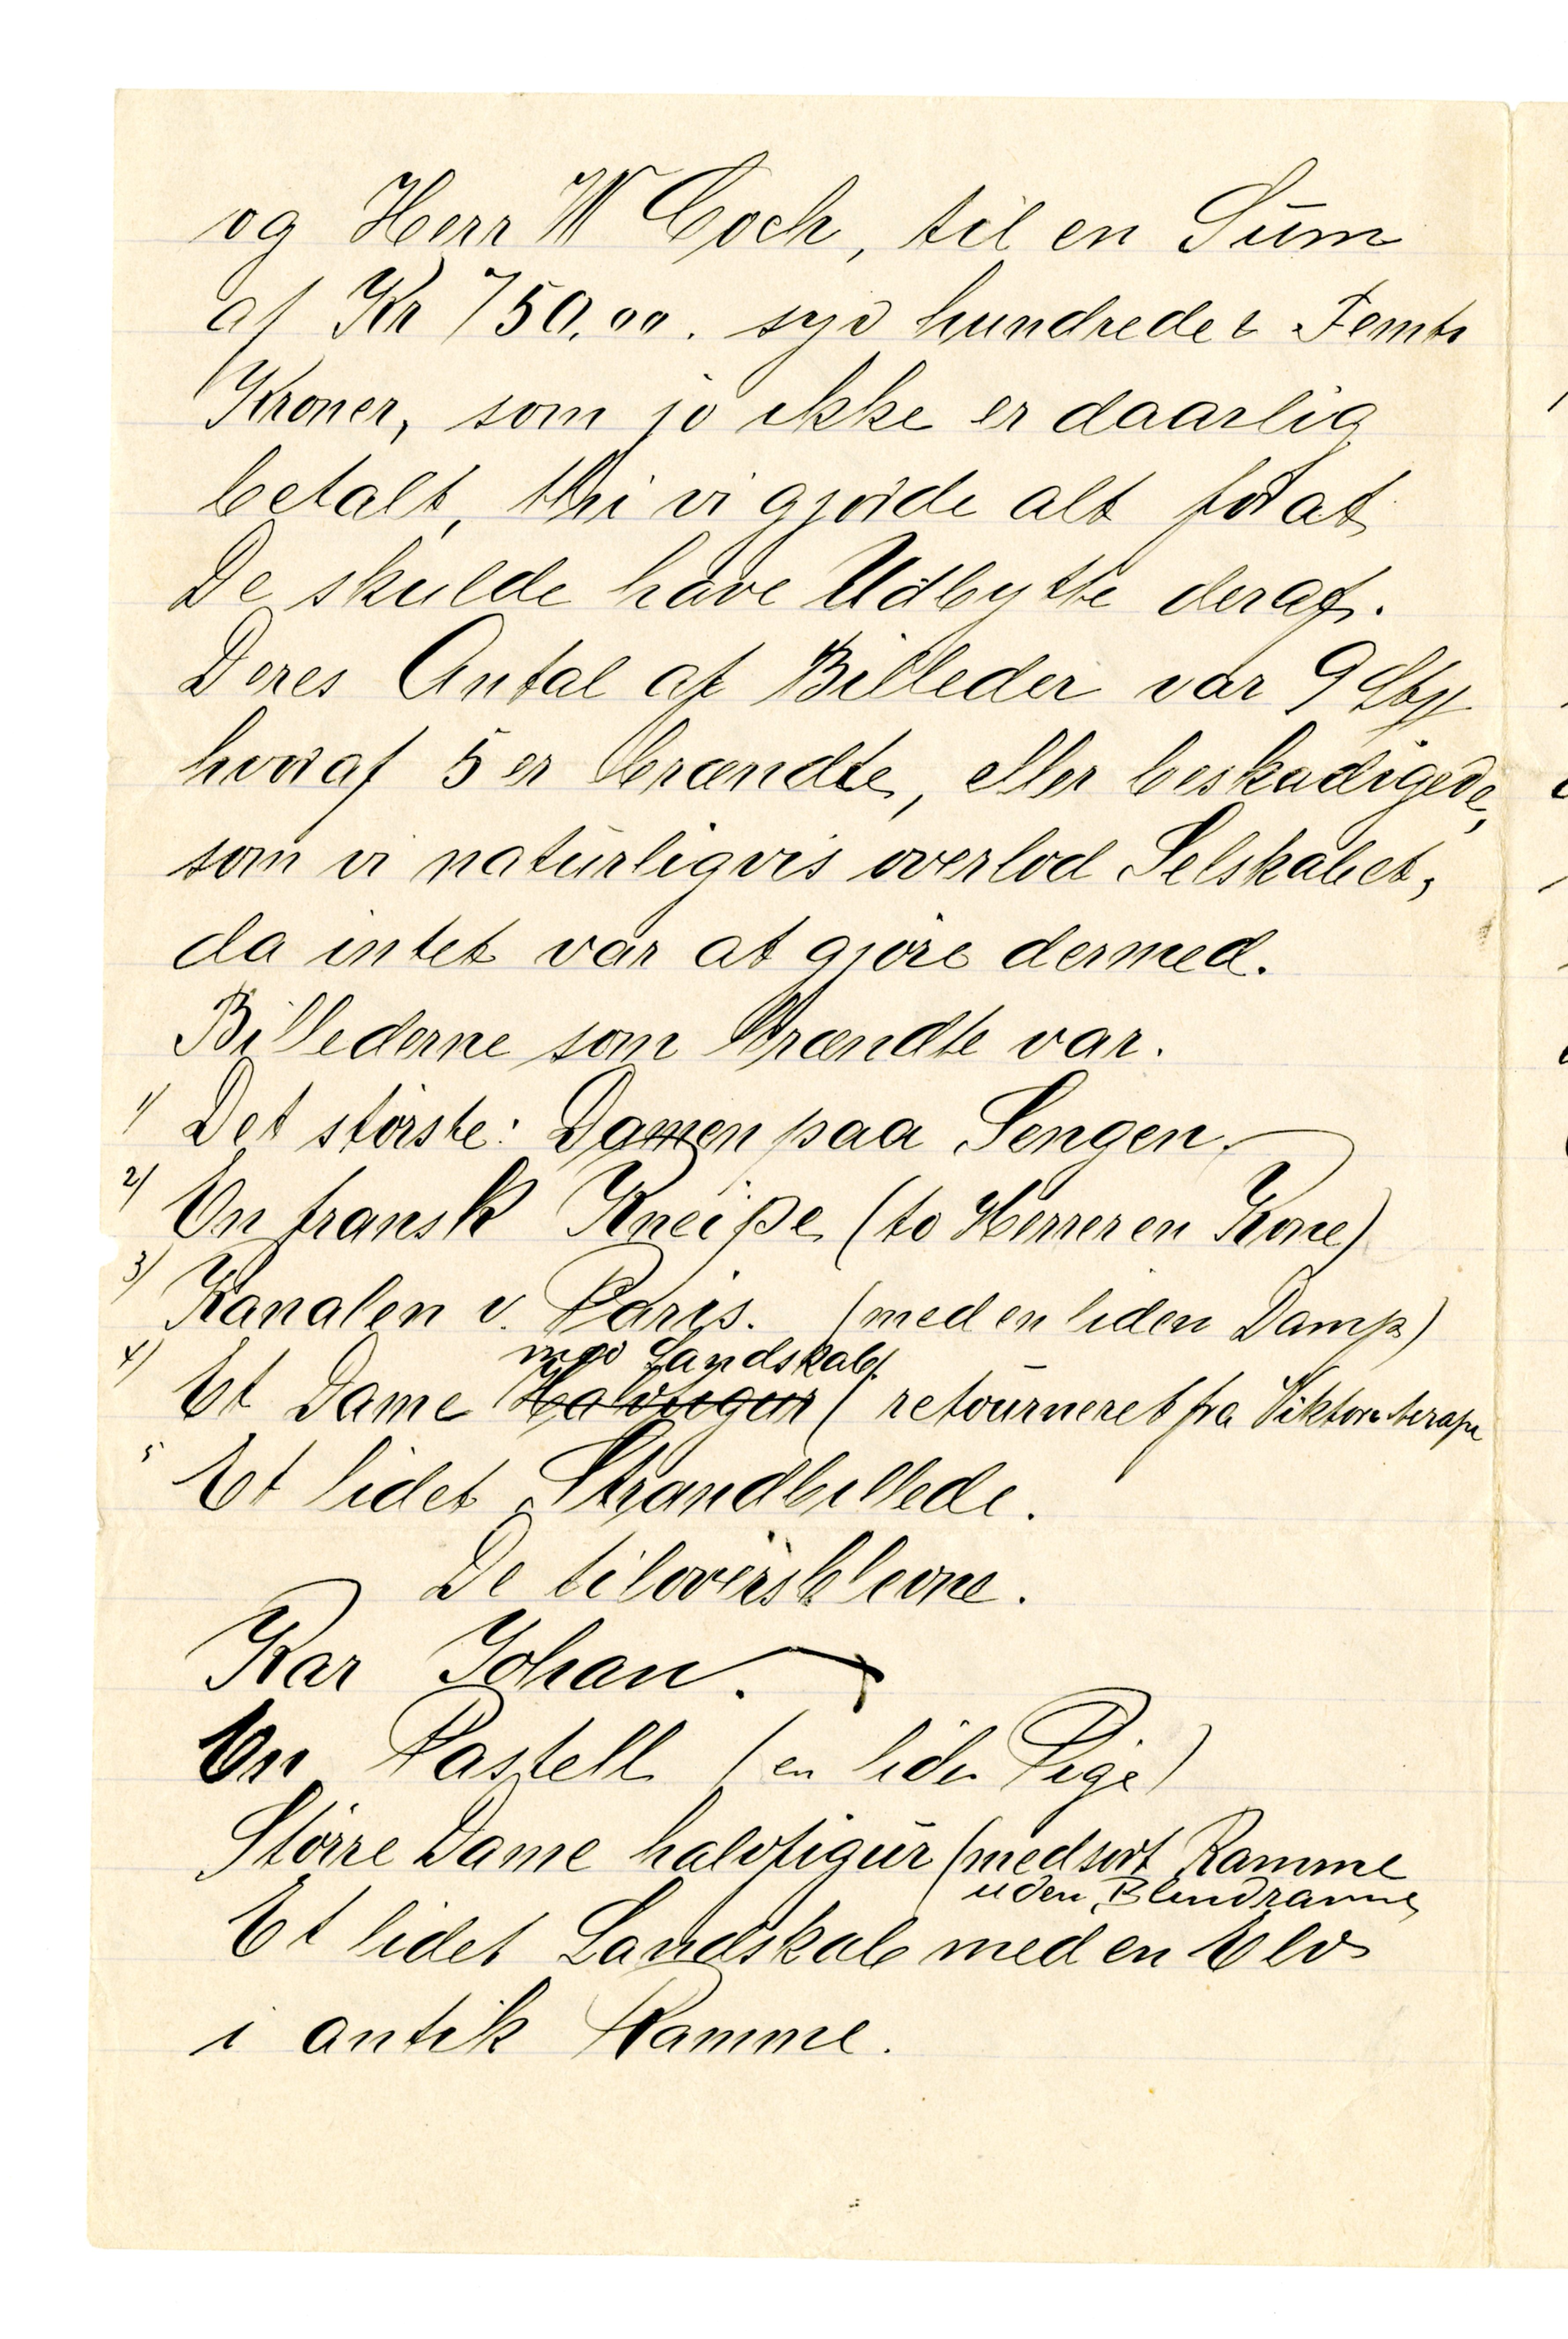 og Herr W Coch, til en Sum
af Kr 750,00. syv hundrede & Femti
Kroner, som jo ikke er daarlig
betalt, thi vi gjorde alt for at
De skulde have Udbytte deraf.
Deres Antal af Billeder var 9 Sty
hvoraf 5 er brændte, eller beskadigede,
som vi naturligvis overlod Selskabet,
da intet var at gjøre dermed.
Billederne som brændte var.
1) Det største: Damen paa Sengen.
2) En fransk Kneipe (to Herrer en Kone)
3) Kanalen v. Paris. (med en liden Damp)
med Landskab.
4) Et Dame Halvfigur ( retourneret fra Viktoria
5 Et lidet Strandbillede.
De tiloversblevne.
Kar Johan.
En Pastell (en liden Pige)
Større Dame halvfigur (med sort Ramme
uden Blendramme
Et lidet Landskab med en Elv
i antik Ramme.